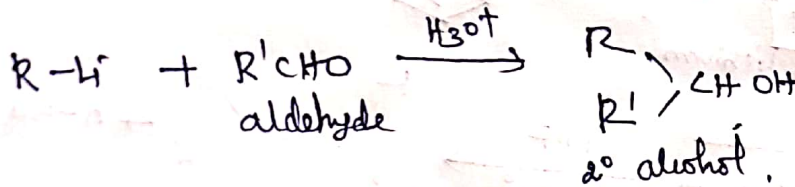 R-Li + R'CHO H3O+ R
CH OH
aldehyde R'
2° alcohol.